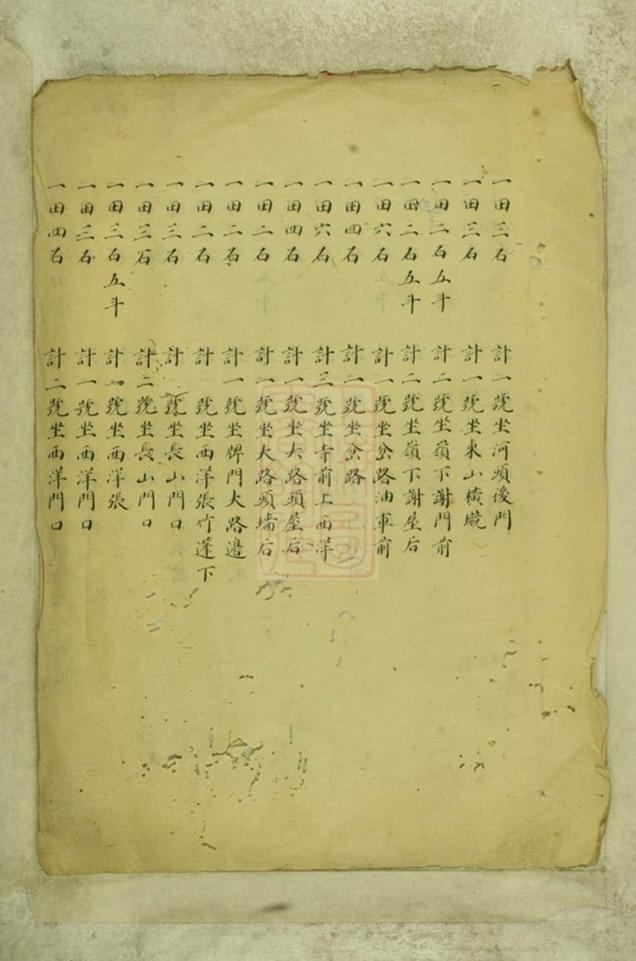 一田三石 計一號坐河頭後門
一田三石 計一號坐東山橫墘
一田二石五斗 計二號坐嶺下謝門前
一田二石五斗 計二號坐嶺下謝屋后
一田六石 計一號坐岔路油車前
一田四石 計一號坐岔路
一田六石 計三號坐寺前上西洋
一田四石 計一號坐大路頭屋后
一田二石 計一號坐大路頭墻后
一田二石 計一號坐牌門大路邊
一田二石 計號坐西洋張竹蓬下
一田三石 計號坐長山門口
一田三石 計二號坐長山門口
一田三石五斗 計一號坐西洋張
一田三石 計一號坐西洋門口
一田四石 計二號坐西洋門口